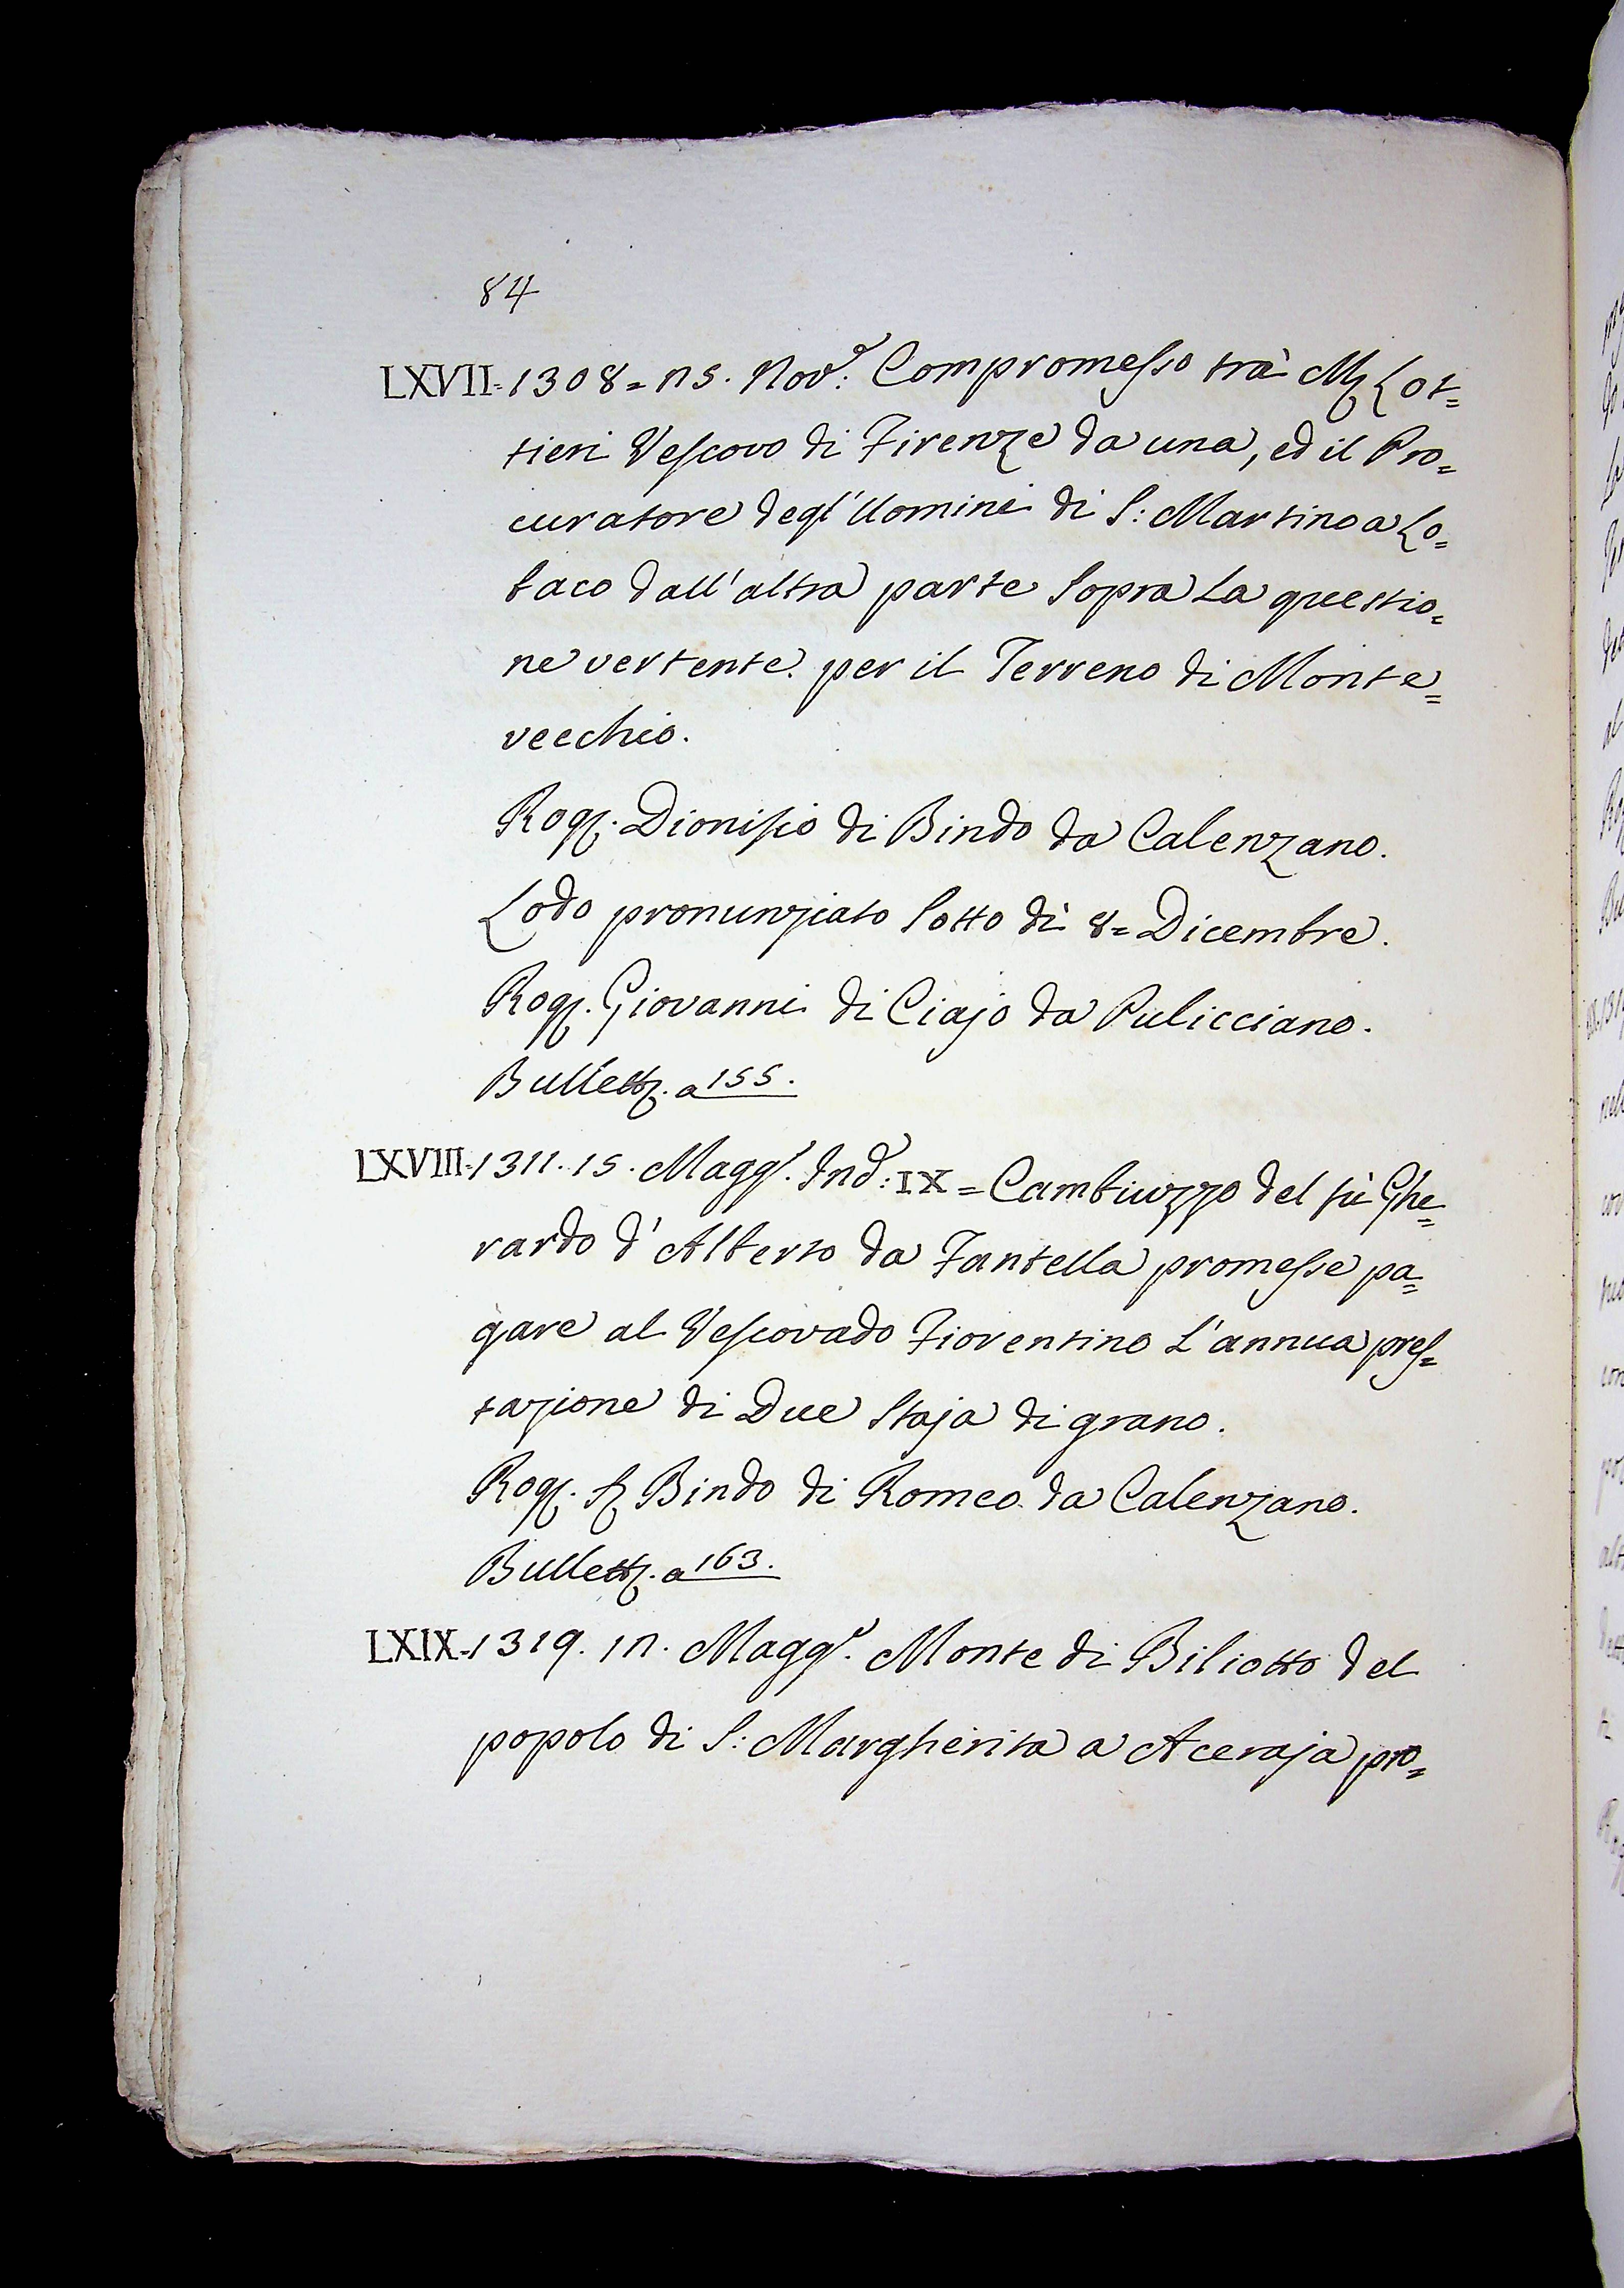 84
LXVII=1308= ns. Nov.e: Compromesso trà Mr Lot=
tieri Vescovo di Firenze da una, ed il Pro=
curatore degl'Uomini di S: Martino a Lo=
baco dall'altra parte sopra la questio=
ne vertente per il Terreno di Monte=
vecchio.
Rogr. Dionisio di Bindo da Calenzano.
Lodo pronunziato sotto dì 8= Dicembre.
Rogr. Giovanni di Ciajo da Pulicciano.
Bullettr. a 155.
LXVIII=1311. 15. Magg.o Ind:e IX= Cambiuzzo del fù Ghe=
rardo d'Alberto da Fantella promesse pa=
gare al Vescovado Fiorentino l'annua pres=
tazione di Due staja di grano.
Rogr. Sr Bindo di Romeo da Calenzano.
Bullettr. a 163.
LXIX=1319. Magg.o Monte di Biliotto del
popolo di S: Margherita a Aceraja pro=